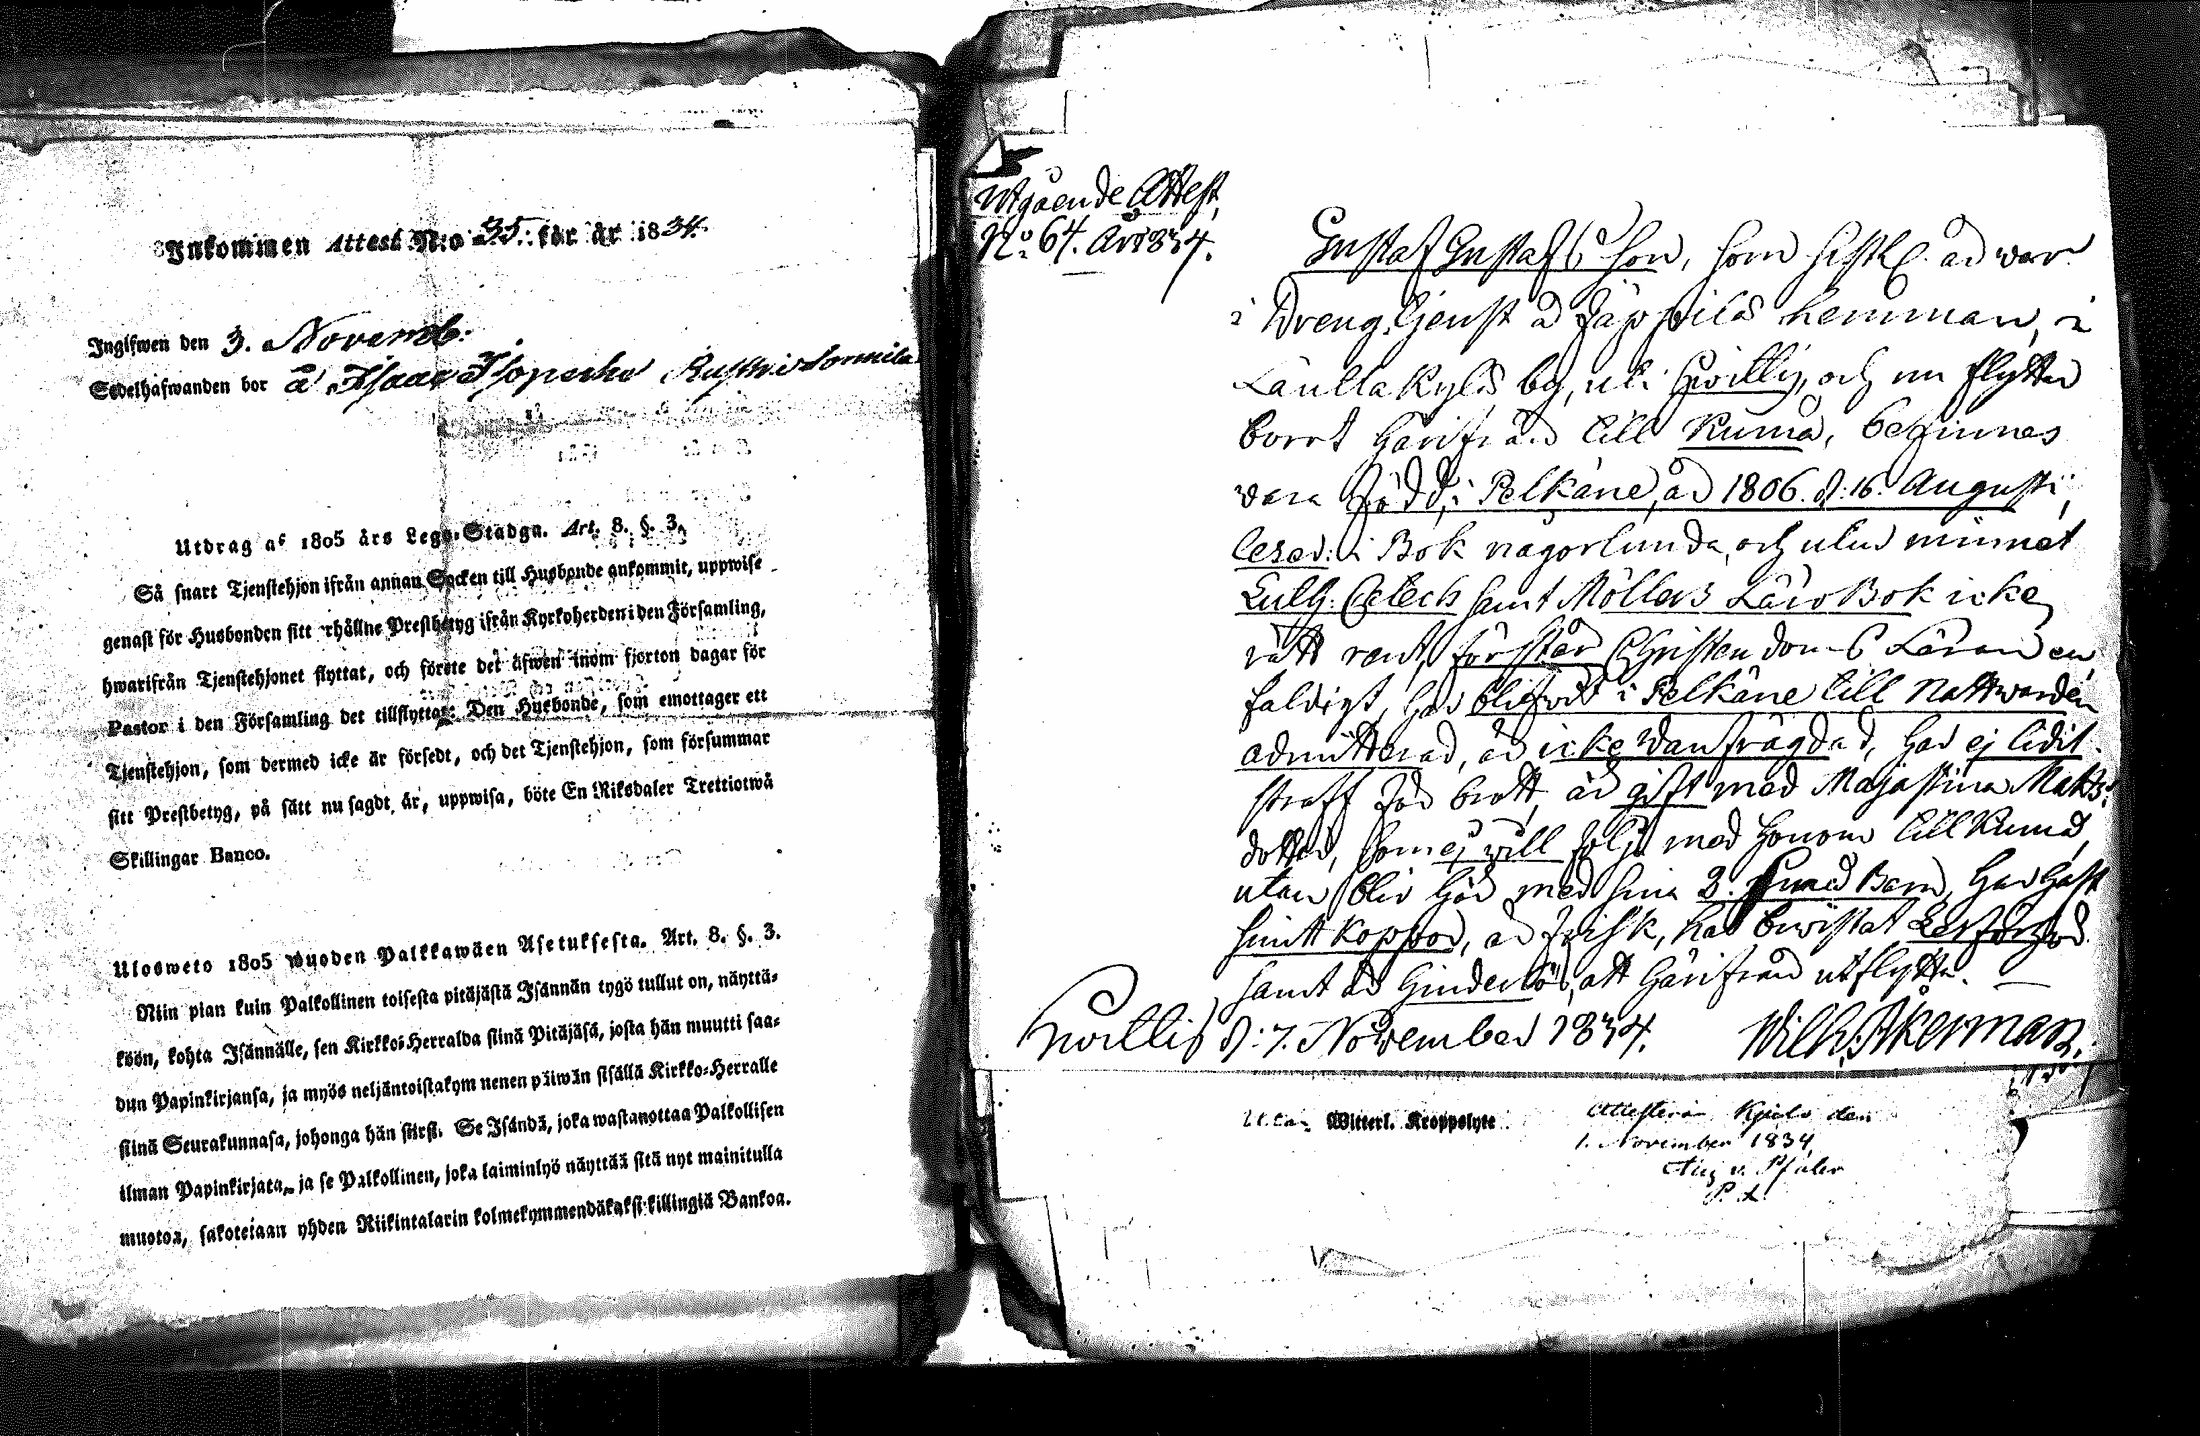 Inkommen Attest N:o 35. för år 1834.
Inglfwen den 3. Novemb:
Sedelhafwanden bor å Isaac Isoperhe
Utdrag af 1805 års Lego-Stadga. Art. 8. §. 3.
Så snart Tjenstehjon ifrån annan Socken till Husbonde ankommit, uppwise
genast för Husbonden sitt erhållne Prestbetyg ifrån Kyrkoherden i den Församling,
hwarifrån Tjenstehjonet flyttat, och förete det äfwen inom fjorton dagar för
Pastor i den Församling det tillflyttat: Den Husbonde, som emottager ett
Tjenstehjon, som dermed icke är försedt, och det Tjenstehjon, som försummar
sitt Prestbetyg, på sätt nu sagdt är, uppwisa, böte En Riksdaler Trettiotwå
Skillingar Banco.
Ulosweto 1805 wuoden Palkkawäen Asetuksesta. Art. 8. §. 3.
Niin pian kuin Palkollinen toisesta pitäjästä Isännän tygö tullut on, näyttä-
köön, kohta Isännälle, sen Kirkko-Herralda siinä Pitäjäsä, josta hän muutti saa-
dun Papinkirjansa, ja myös neljäntoistakymmenen päiwän sisällä Kirkko-Herralle
siinä Seurakunnasa, johonga hän siirsi. Se Isändä, joka wastanottaa Palkollisen
ilman Papinkirjata, ja se Palkollinen, joka laiminlyö näyttää sitä nyt mainitulla
muotoa, sakotetaan yhden Riikintalarin kolmekymmendäkaksi killingiä Bankoa.
Utgående Attest,
No. 64. År 1834.
Gustaf Gustafsson, som sistl. år war
i Drengtjenst å Jäppilä hemman, i
Laullakylä by, uti, och nu flyttar
borrt härifrån till Kumå, befinnes
vara född i Pelkäne, år 1806. d. 16. Augusti,
läser i Bok någorlunda, och utur minnet
Luth. Catech samt Möllers LäroBok icke
rätt rent, förstår Christendoms Läran en
faldigt, har blifwit i Pelkäne till Nattwarden
admitterad, är icke wanfrägdad, har ej lidit
straff för brott, är gift med Maja Stina Matts-
dotter, som ej will följa med honom till Kumå,
utan blir här med sina 2. små Barn, har haft
Smittkoppor, är frisk, har bewistat Läsförhör
samt är hinderlös, att härifrån utflytta.
d. 7. November 1834. Wilh: Åkerman
Utan Witterl. Kroppslyte
Attesterar Kjulo den
1. November 1834